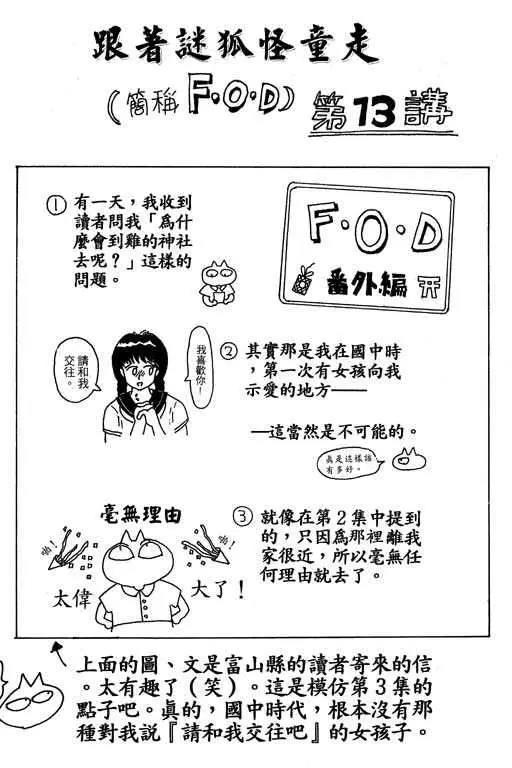 跟著謎狐怪童走
(簡稱F·O·D) 第13講
F·O·D
番外編
① 有一天，我收到
讀者問我「為什
麼會到雞的神社
去呢？」這樣的
問題。
② 其實那是我在國中時
，第一次有女孩向我
示愛的地方——
我喜歡你！
請和我
交往。
—這當然是不可能的。
真是這樣該
有多好。
③ 就像在第２集中提到
的，只因為那裡離我
家很近，所以毫無任
何理由就去了。
毫無理由
啪！
啪！
太偉
大了！
上面的圖、文是富山縣的讀者寄來的信
。太有趣了（笑）。這是模仿第３集的
點子吧。真的，國中時代，根本沒有那
種對我說『請和我交往吧』的女孩子。